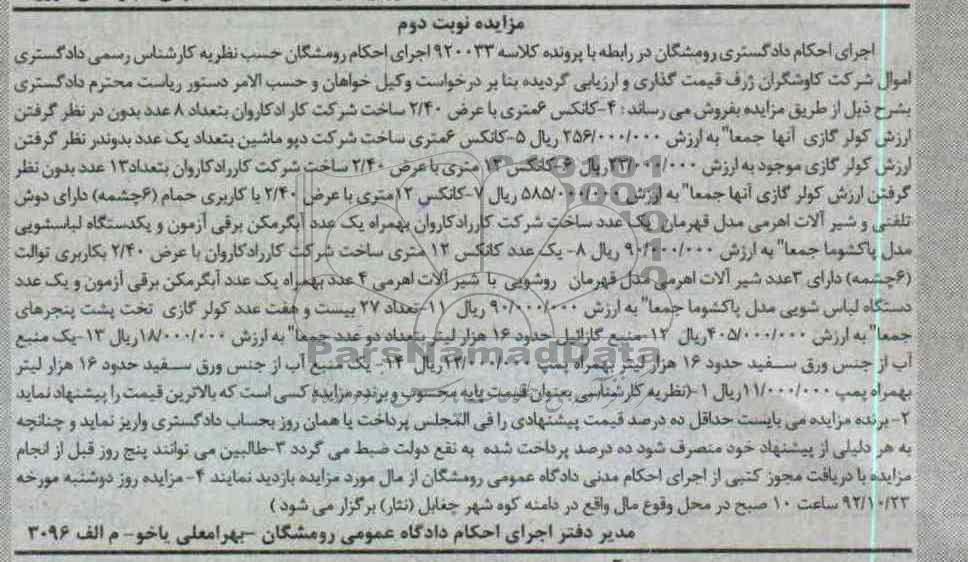 مزایده نوبت دوم
اجرای احکام دادگستری رومشگان در رابطه با پرونده کلاسه ۹۲۰۰۳۳ اجرای احکام رومشگان حسب نظریه کارشناس رسمی دادگستری
اموال شرکت کاوشگران ژرف قیمت گذاری و ارزیابی گردیده بنا بر درخواست وکیل خواهان و حسب الامر دستور ریاست محترم دادگستری
بشرح ذیل از طریق مزایده بفروش می رساند: ۴-کانکس ۶متری با عرض ۲/۴۰ ساخت شرکت کار ادکاروان بتعداد ۸ عدد بدون در نظر گرفتن
ارزش کولر گازی آنها جمعا" به ارزش ۲۵۶/۰۰۰/۰۰۰ ریال ۵-کانکس ۶متری ساخت شرکت دپو ماشین بتعداد یک عدد بدوندر نظر گرفتن
ارزش کولر گازی موجود به ارزش ۲۳/۰۰۰/۰۰۰ریال ۶-کانکس ۱۲ متری با عرض ۲/۴۰ ساخت شرکت کاررادکاروان بتعداد۱۳ عدد بدون نظر
گرفتن ارزش کولر گازی آنها جمعا" به ارزش ۵۸۵/۰۰۰/۰۰۰ ریال ۷-کانکس ۱۲متری با عرض ۲/۴۰ با کاربری حمام (۶چشمه) دارای دوش
تلفنی و شیر آلات اهرمی مدل قهرمان یک عدد ساخت شرکت کاررادکاروان بهمراه یک عدد آبگرمکن برقی آزمون و یکدستگاه لباسشویی
مدل پاکشوما جمعا" به ارزش ۹۰/۰۰۰/۰۰۰ ریال ۸- یک عدد کانکس ۱۲ متری ساخت شرکت کاررادکاروان با عرض ۲/۴۰ بکاربری توالت
(۶چشمه) دارای ۳عدد شیر آلات اهرمی مدل قهرمان روشویی با شیر آلات اهرمی ۴ عدد بهمراه یک عدد آبگرمکن برقی آزمون و یک عدد
دستگاه لباس شویی مدل پاکشوما جمعا" به ارزش ۹۰/۰۰۰/۰۰۰ ریال ۱۱-تعداد ۲۷ بیست و هفت عدد کولر گازی تخت پشت پنجرهای
جمعا" به ارزش ۴۰۵/۰۰۰/۰۰۰ریال ۱۲-منبع گازائیل حدود ۱۶ هزار لیتر بتعداد دو عدد جمعا" به ارزش ۱۸/۰۰۰/۰۰۰ریال ۱۳-یک منبع
آب از جنس ورق سفید حدود ۱۶ هزار لیتر بهمراه پمپ ۱۲/۰۰۰/۰۰۰ریال ۱۴- یک منبع آب از جنس ورق سفید حدود ۱۶ هزار لیتر
بهمراه پمپ ۱۱/۰۰۰/۰۰۰ریال ۱-(نظریه کارشناسی بعنوان قیمت پایه محسوب و برنده مزایده کسی است که بالاترین قیمت را پیشنهاد نماید
۲-برنده مزایده می بایست حداقل ده درصد قیمت پیشنهادی را فی المجلس پرداخت یا همان روز بحساب دادگستری واریز نماید و چنانچه
به هر دلیلی از پیشنهاد خود منصرف شود ده درصد پرداخت شده به نفع دولت ضبط می گردد ۳-طالبین می توانند پنج روز قبل از انجام
مزایده با دریافت مجوز کتبی از اجرای احکام مدنی دادگاه عمومی رومشگان از مال مورد مزایده بازدید نمایند ۴- مزایده روز دوشنبه مورخه
۹۲/۱۰/۲۳ ساعت ۱۰ صبح در محل وقوع مال واقع در دامنه کوه شهر چغابل (نثار) برگزار می شود)
مدیر دفتر اجرای احکام دادگاه عمومی رومشگان -بهرامعلی یاخو- م الف ۳۰۹۶
ParsNamadData